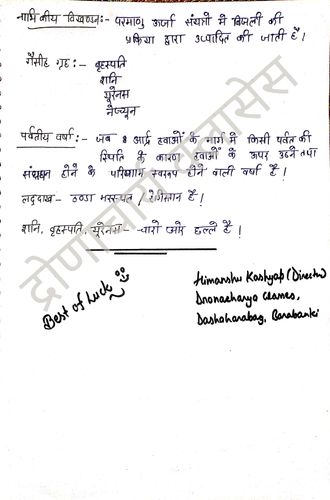 नाभिकीय विखण्डन:- परमाणु ऊर्जा संयंत्रो में बिजली की
प्रक्रिया द्वारा उत्पादित की जाती है।
गैसीय गृह:- बृहस्पति
शनि
यूरेनस
नेप्च्यून
पर्वतीय वर्षा:- जब आर्द्र हवाओं के मार्ग में किसी पर्वत की
स्थिति के कारण हवाओं के ऊपर उठने तथा
संघनन होने के परिणाम स्वरूप होने वाली वर्षा है।
लद्दाख- ठण्डा मरुस्थल / रेगिस्तान है।
शनि, बृहस्पति, यूरेनस- चारो ओर छल्ले है।
Best of Luck
Himanshu Kashyap (Director)
Dronacharya Classes,
Dashaharabag, Barabanki
द्रोणाचार्य क्लासेस